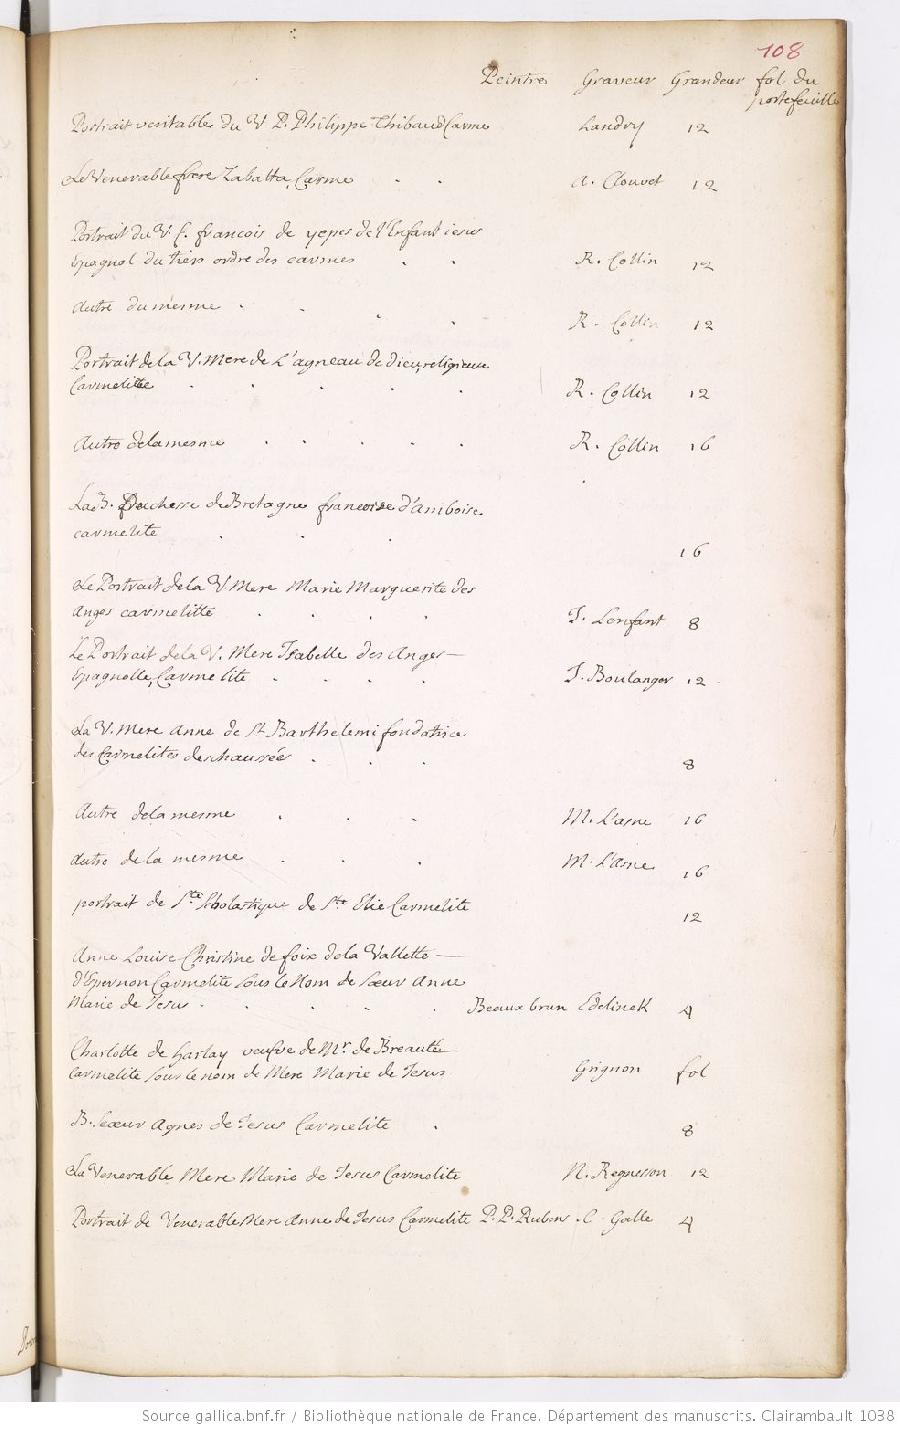 108
Peintre Graveur Grandeur fol. du
portefeuille
Portrait veritable du V P. Philippe Thibaud Carme Landry 12
Le Venerable frere Zabatta, Carme . . A. Clouvet 12
Portrait du V. f. francois de yepes de l'Enfant iesus
Espagnol du tiers ordre des carmes . . R. Collin 12
Autre du mesme . . . . R. Collin 12
Portrait de la V. Mere de L'agneau de dieu, religieuse
Carmelitte . . . . . R. Collin 12
Autre de la mesme . . . . . R. Collin 16
La B. Duchesse de Bretagne francoise d'Amboise
carmelite . . . 16
Le Portrait de la V. Mere Marie Marguerite des
Anges carmelitte . . . . J. Lenfant 8
Le Portrait de la V. Mere Isabelle des Anges —
Espagnolle, Carmelite . . . . J. Boulanger 12
La V. Mere Anne de St Barthelemi fondatrice
des Carmelites deschaussées . . . 8
Autre de la mesme . . . M. L'asne 16
autre de la mesme . . . M. L'Asne 16
portrait de Ste Scholastique de Ste Elie Carmelite 12
Anne Louise Christine de foix de la Vallette —
d'Epernon Carmelite sous le Nom de Soeur Anne
Marie de Jesus . . . . . Beaux brun Edelinck 4
Charlotte de harlay veufve de Mr. de Breauté
Carmelite sous le nom de Mere Marie de Jesus Grignon fol
B. Soeur Agnes de Jesus Carmelite . 8
La Venerable Mere Marie de Jesus Carmelite N. Regnesson 12
Portrait de Venerable Mere Anne de Jesus Carmelite P. P. Rubens . C. Galle 4
Source gallica.bnf.fr / Bibliothèque nationale de France. Département des manuscrits. Clairambault 1038